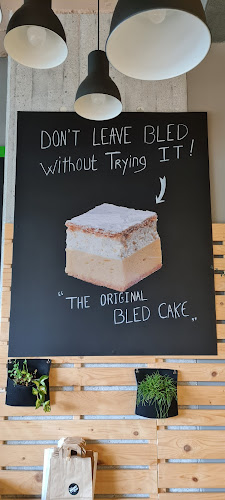 DON'T LEAVE BLED
Without Trying IT!
"THE ORIGINAL
BLED CAKE„